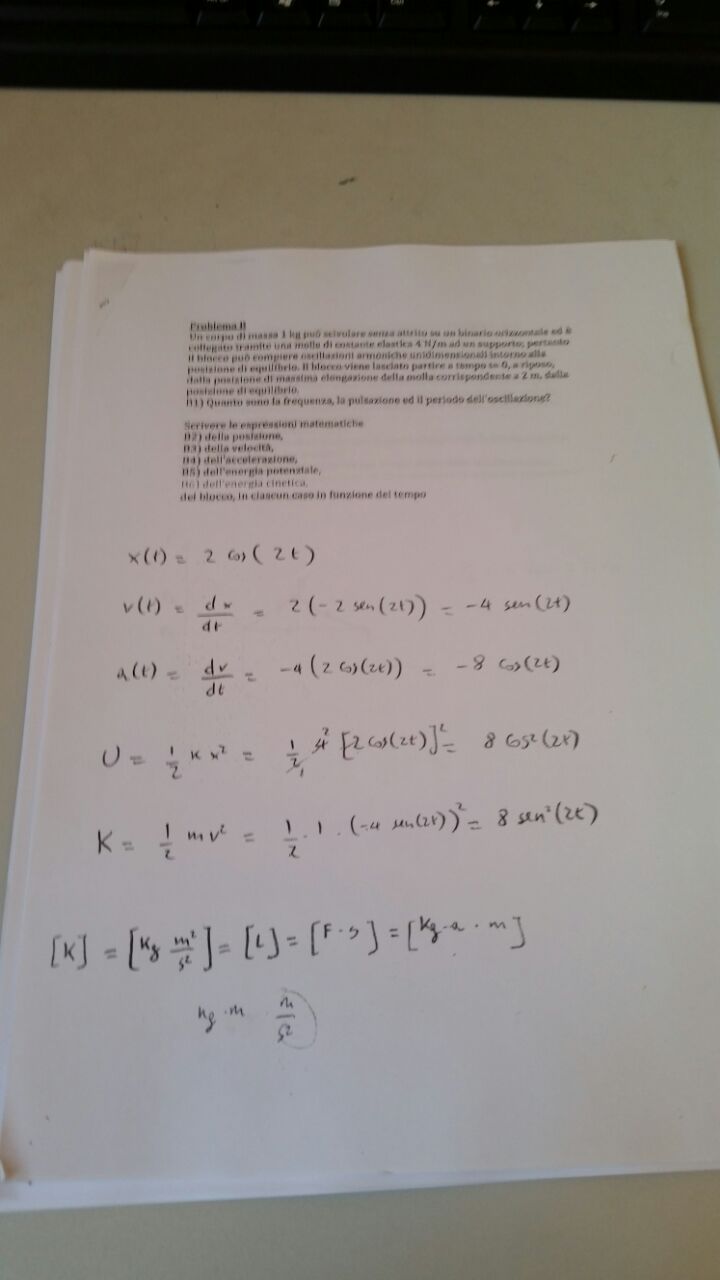 Problema B
Un corpo di massa 1 kg può scivolare senza attrito su un binario orizzontale ed è
collegato tramite una molla di costante elastica 4 N/m ad un supporto; pertanto
il blocco può compiere oscillazioni armoniche unidimensionali intorno alla
posizione di equilibrio. Il blocco viene lasciato partire a tempo t= 0, a riposo,
dalla posizione di massima elongazione della molla corrispondente a 2 m, dalla
posizione di equilibrio.
B1) Quanto sono la frequenza, la pulsazione ed il periodo dell'oscillazione?
Scrivere le espressioni matematiche
B2) della posizione,
B3) della velocità,
B4) dell'accelerazione,
B5) dell'energia potenziale,
B6) dell'energia cinetica,
del blocco, in ciascun caso in funzione del tempo
x(t) = 2 cos( 2t )
v(t) = dx/dt = 2(-2 sen(2t)) = -4 sen(2t)
a(t) = dv/dt = -4(2 cos(2t)) = -8 cos(2t)
U = 1/2 K x² = 1/2 4 [2 cos(2t)]² = 8 cos²(2t)
K = 1/2 m v² = 1/2 · 1 · (-4 sen(2t))² = 8 sen²(2t)
[K] = [Kg m²/s²] = [L] = [F · s] = [Kg · a · m]
kg · m m/s²